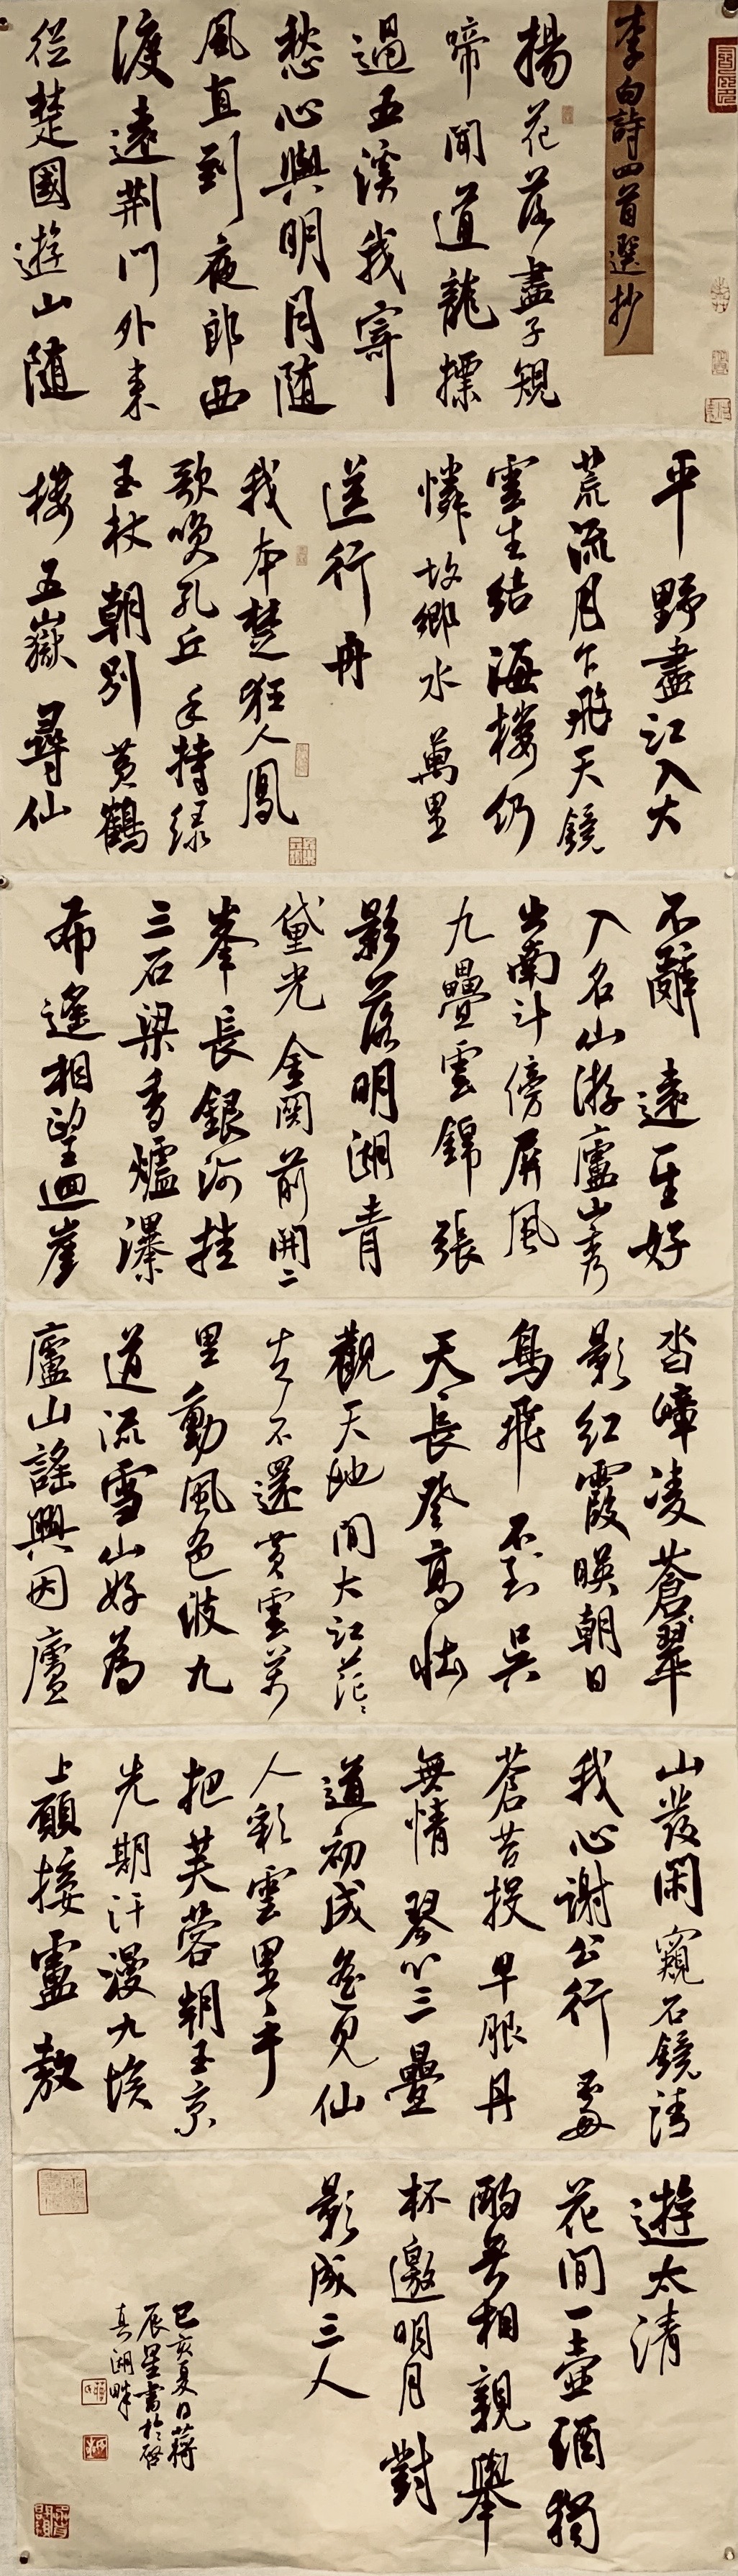 李白詩四首選抄
揚花落盡子規
啼聞道龍標
過五溪我寄
愁心與明月隨
風直到夜郎西
渡遠荆門外來
從楚國遊山隨
平野盡江入大
荒流月下飛天鏡
雲生結海樓仍
憐故鄉水萬里
送行舟
我本楚狂人鳳
歌笑孔丘手持绿
玉杖朝别黄鶴
樓五嶽尋仙
不辭遠一生好
入名山游廬山秀
出南斗傍屏風
九疊雲錦張
影落明湖青
黛光金闕前開二
峯長銀河挂
三石梁香爐瀑
布遙相望迴崖
沓嶂凌蒼翠
影紅霞映朝日
鳥飛不到吴
天長登高壯
觀天地間大江茫々
去不還黄雲萬
里動風色波九
道流雪山好為
廬山謠興因廬
山發閑窺石鏡清
我心謝公行處
蒼苔投早服丹
無情琴心三疊
道初成遙見仙
人彩雲里手
把芙蓉朝玉京
先期汗漫九垓
上願接盧敖
遊太清
花間一壺酒獨
酌無相親舉
杯邀明月對
影成三人
己亥夏日蔣
辰星書於啓
真湖畔